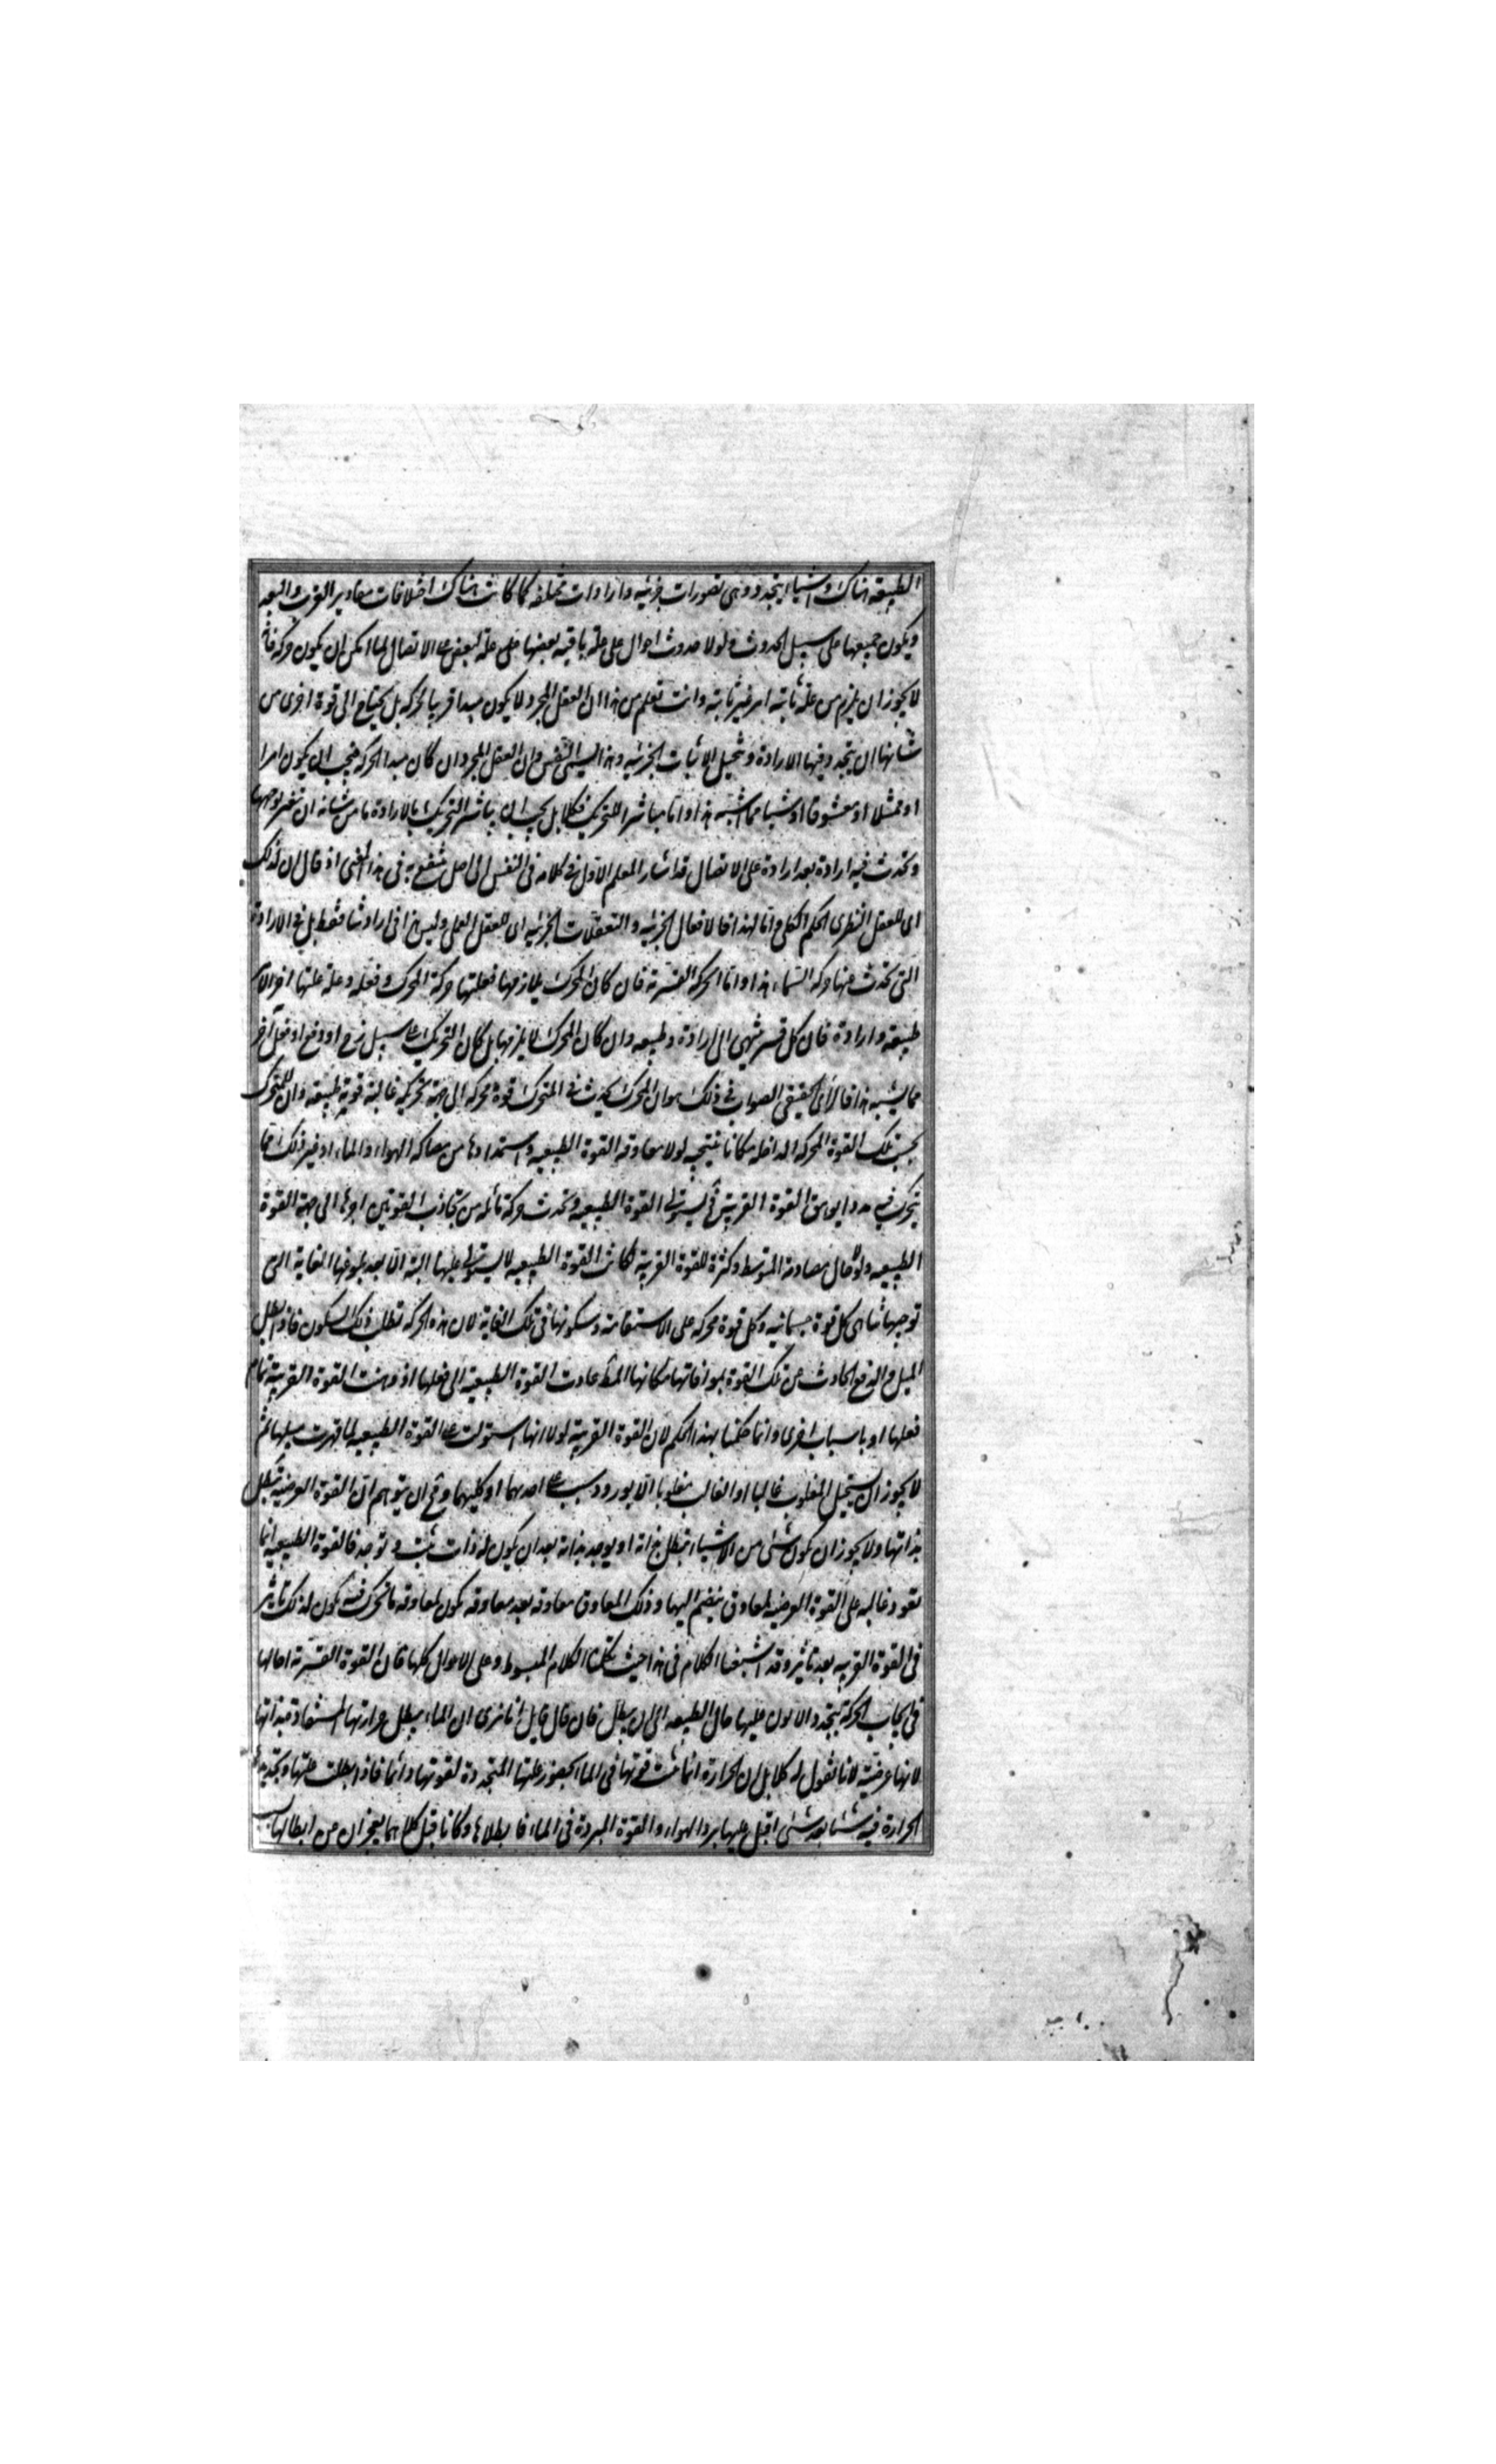 الطبيعة هناك واشياء يتجدد وهى تصورات جزئيه وارادات مختلفه كما كانت هناك اختلافات مقادير القرب والبعد
ويكون جميعها على سبيل الحدوث ولولا حدوث احوال على علة باقيه بعضها على علة لبعض على الاتصال لما امكن ان يكون حركه فانه
لا يجوز ان يلزم من علة ثابته امر غير ثابته وانت تعلم من هذا ان العقل المجرد لا يكون مبدا قريبا لحركه بل يحتاج الى قوة اخرى من
شانها ان يتجدد فيها الارادة وتتخيل الاينات الجزئيه وهذا يسمى النفس وان العقل المجرد ان كان مبدا لحركه فيجب ان يكون امرا
او ممثلا او متشوقا او شيئا مما اشبه هذا واما مباشرا للتحريك فكلا بل يجب ان يباشر التحريك بالارادة ما من شانه ان يتغير بوجه ما
وتحدث فيه ارادة بعد ارادة على الاتصال قد اشار المعلم الاول فى كلامه فى النفس الى اصل ينتفع به فى هذا المعنى اذ قال ان لذلك
اى للعقل النظرى الحكم الكلى واما لهذا فالافعال الجزئيه والتعقلات الجزئيه اى للعقل العملى وليس هذا فى ارادتنا فقط بل فى الارادة
التى تحدث عنها حركه السماء هذا واما الحركه القسرية فان كان المحرك يلازمها فعلتها حركة المحرك وفعله وعلة علتها اخر الامر
طبيعة وارادة فان كل قسر ينتهى الى ارادة وطبيعه وان كان المحرك لا يلزمها بل كان التحريك على سبيل زج او دفع او فعل آخر
مما يشبه هذا فالراى الحقيقى الصواب فى ذلك هو ان المحرك يحدث فى المتحرك قوة محركه الى جهة تحريكه غالبة قوية طبيعيه وان للمتحرك
بحسب تلك القوة المحركه الداخله مكانا ينتحيه لولا معاوقه القوة الطبيعيه واستمدادها من مصاكه الهواء والماء او غير ذلك مما
يتحرك فيه مددا يوهن القوة الغريبة فح يستولى القوة الطبيعيه وتحدث حركة مائله من تجاذب القوتين اجرها الى جهة القوة
الطبيعيه ولولا حال مصادمة المتوسط وكثرة للقوة الغريبه لكانت القوة الطبيعيه لا يستولى عليها البتة الا بعد بلوغها الغاية التى
توجبها تناهى كل قوة جسمانيه وكل قوة محركه على الاستقامة وسكونها فى تلك الغاية لان هذه الحركه تطلب ذلك السكون فاذا بطل
الميل والدفع الحادث من تلك القوة بموافاتها مكانها المظ عادت القوة الطبيعية الى فعلها اذ وهنت القوة الغريبة بتمام
فعلها او باسباب اخرى وانما حكمنا بهذا الحكم لان القوة الغريبة لولا انها استولت على القوة الطبيعيه لما قهرت ميلها ثم
لا يجوز ان يستحيل المغلوب غالبا او الغالب مغلوبا الا بورود سبب على احدهما او كليهما وقح ان يتوهم ان القوة العرضية تبطل
بذاتها ولا يجوز ان يكون شئ من الاشياء يبطل بذاته او يوجد بذاته بعد ان يكون له ذات يثبت و توجد فالقوة الطبيعيه انما
تعود غالبه على القوة العرضيه لمعاوق ينضم اليها وذلك المعاوق معاوقه بعد معاوقه يكون لمعاوقه ما يتحرك فيه يكون لذلك تاثير
فى القوة الغريبه بعد تاثير وقد اشبعنا الكلام فى هذا حيث تكلمنا الكلام المبسوط وعلى الاحوال كلها فان القوة القسرية احالها
فى ايجاب الحركة بتجدد الايون عليها حال الطبيعه الى ان يبطل فان قال قايل انا نرى ان الماء يبطل حرارتها المستفادة بذاتها
لانها عرضية لانا نقول له كلا بل ان الحرارة انما ثبت قوتها فى الماء بحضور علتها المتجددة لقوتها دائما فاذا بطلت علتها وتجديد
الحرارة فيه شيئا بعد شئ اقبل عليها برد الهواء والقوة المبردة فى الماء فابطلاها وكانا قبل كلاهما يعجزان من ابطالها